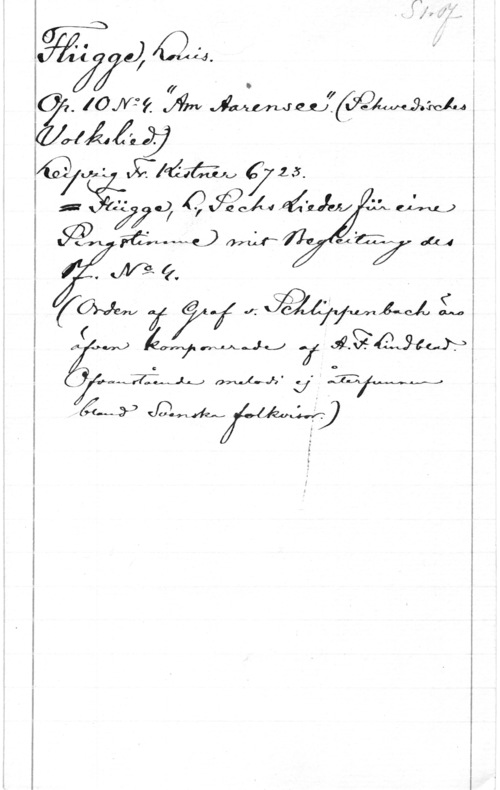 S1. Pf.
Flügge, Louis.
Op. 10 Nº 4. "Am Aarensee". (Schwedisches
Volkslied.)
Leipzig Fr. Kistner 6723.
= Flügge, L., Sechs Lieder für eine
Singstimme mit Begleitung des
Pf. Nº 4.
(Orden af Graf v. Schlippenbach äro
äfven komponerade af A. F. Lindblad.
Ofvanstående melodi ej återfunnen
bland Svenska folkvisor.)